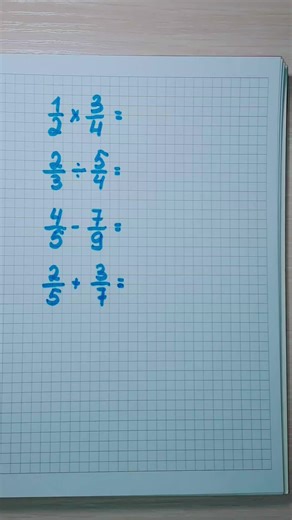 1/2 × 3/4 =
2/3 ÷ 5/4 =
4/5 - 7/9 =
2/5 + 3/7 =